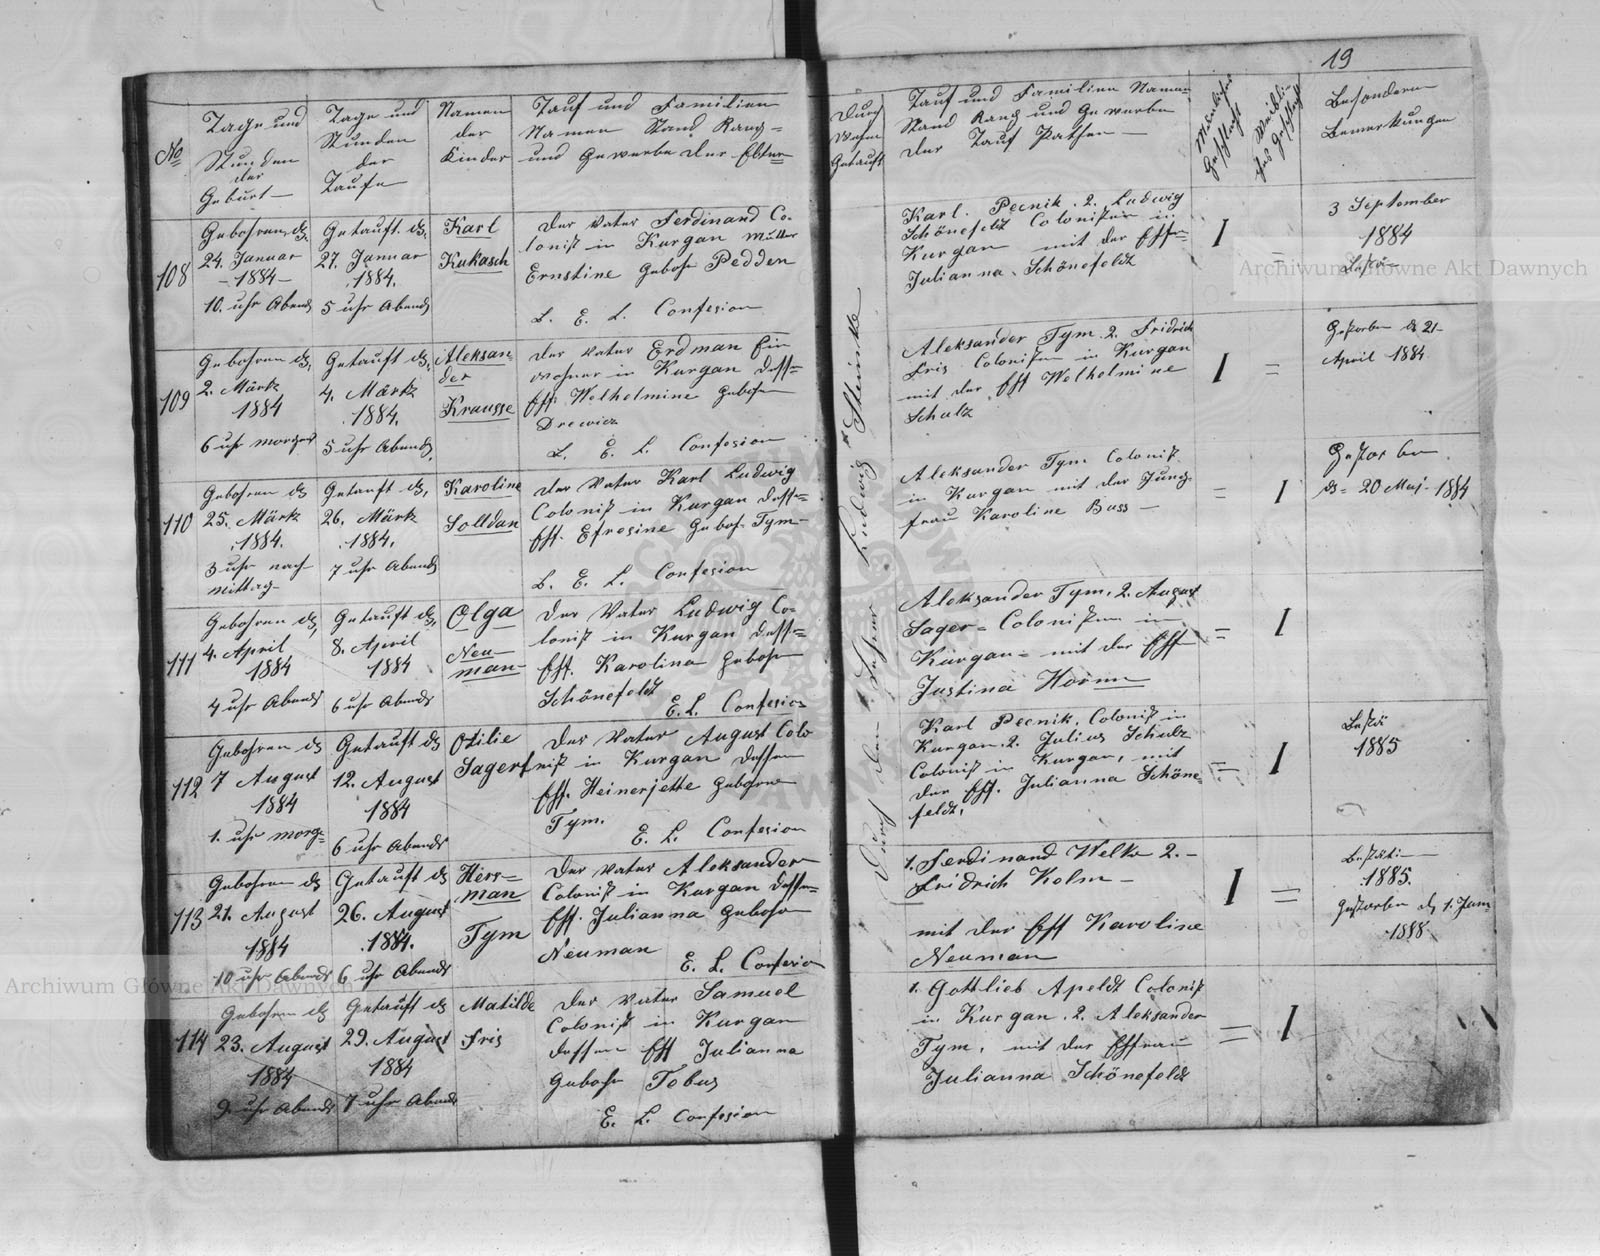 19
No
Tage und
Stunden
der
Geburt
Tage und
Stunden
der
Taufe
Namen
der
Kinder
Tauf und Familien
Namen Stand Rang
und Gewerbe der Elter
Durch
Getauft
Tauf und Familien Namen
Stand Rang und Gewerbe
der Tauf Pathen
Besondere
Bemerkungen
108
Gebohren d.
24. Januar
1884
10. uhr Abends
Getauft d.
27. Januar
1884.
5 uhr Abends
Karl
Kukasch
Der Vater Ferdinand Co-
lonist in Kurgan Mutter
Ernstine Gebohr Pedden
L. E. L. Confesion
Karl Pecnik. 2. Ludwig
Schönefeldt Colonisten in
Kurgan mit der Ehfr
Julianna Schönefeldt
I =
3 September
1884
109
Gebohren d.
2. Märtz
1884
6 uhr morgens
Getauft d.
4. Märtz
1884.
5 uhr Abends
Aleksan-
der
Krausse
Der Vater Erdman Ein
wohner in Kurgan dess=
Ehf. Welhelmine Gebohr
Drewicz
L. E. L. Confesion
Aleksander Tym. 2. Fridrich
Fris Colonisten in Kurgan
mit der Ehf Welhelmine
Schulz
I =
Gestorben d 21
April 1884
110
Gebohren d
25. Märtz
1884.
3 uhr nach
mittag
Getauft d.
26. Märtz
1884.
7 uhr Abends
Karoline
Solldan
Der Vater Karl Ludwig
Colonist in Kurgan dess=
Ehf. Efresine Gebohr Tym
L. E. L. Confesion
Aleksander Tym Colonist
in Kurgan mit der Jung
frau Karoline Buss
= I
Gestorben
d= 20 Maj 1884
111
Gebohren d,
4. April
1884
4 uhr Abends
Getauft d.
8. April
1884
6 uhr Abends
Olga
Neu-
man
Der Vater Ludwig Co-
lonist in Kurgan dess=
Ehf. Karolina Gebohr
Schönefeldt
E. L. Confesion
Aleksander Tym. 2. August
Sager = Colonisten in
Kurgan = mit der Ehf
Justina Hornn
= I
112
Gebohren d
7 August
1884
1. uhr morg=
Getauft d
12. August
1884
6 uhr Abends
Otilie
Sager
Der Vater August Colo
nist in Kurgan dessen
Ehf. Heinerjette Gebohrne
Tym.
E. L. Confesion
Karl Pecnik, Colonist in
Kurgan. 2. Julius Schulz
Colonist in Kurgan, mit
der Ehf. Julianna Schöne=
feldt.
= I
1885
113
Gebohren d
21. August
1884
10 uhr Abends
Getauft d
26. August
1884.
6 uhr Abends
Herr=
man
Tym
Der Vater Aleksander
Colonist in Kurgan dessen
Ehf. Julianna Gebohr
Neuman
E. L. Confesion
1. Ferdinand Welke 2.
Fridrich Kolm
mit der Ehf Karoline
Neuman
I =
1885.
Gestorben d 1. Juni
1888
114
Gebohren d
23. August
1884
9. uhr Abends
Getauft d
29. August
1884
7 uhr Abends
Matilde
Fris
Der Vater Samuel
Colonist in Kurgan
dessen Ehf Julianna
Gebohr Tobus
E. L. Confesion
1. Gottlieb Apeldt Colonist
in Kurgan. 2. Aleksander
Tym, mit der Ehfrau
Julianna Schönefeldt
= I
Durch den Lehrer Ludwig Steinke
Archiwum Główne Akt Dawnych
Archiwum Główne Akt Dawnych